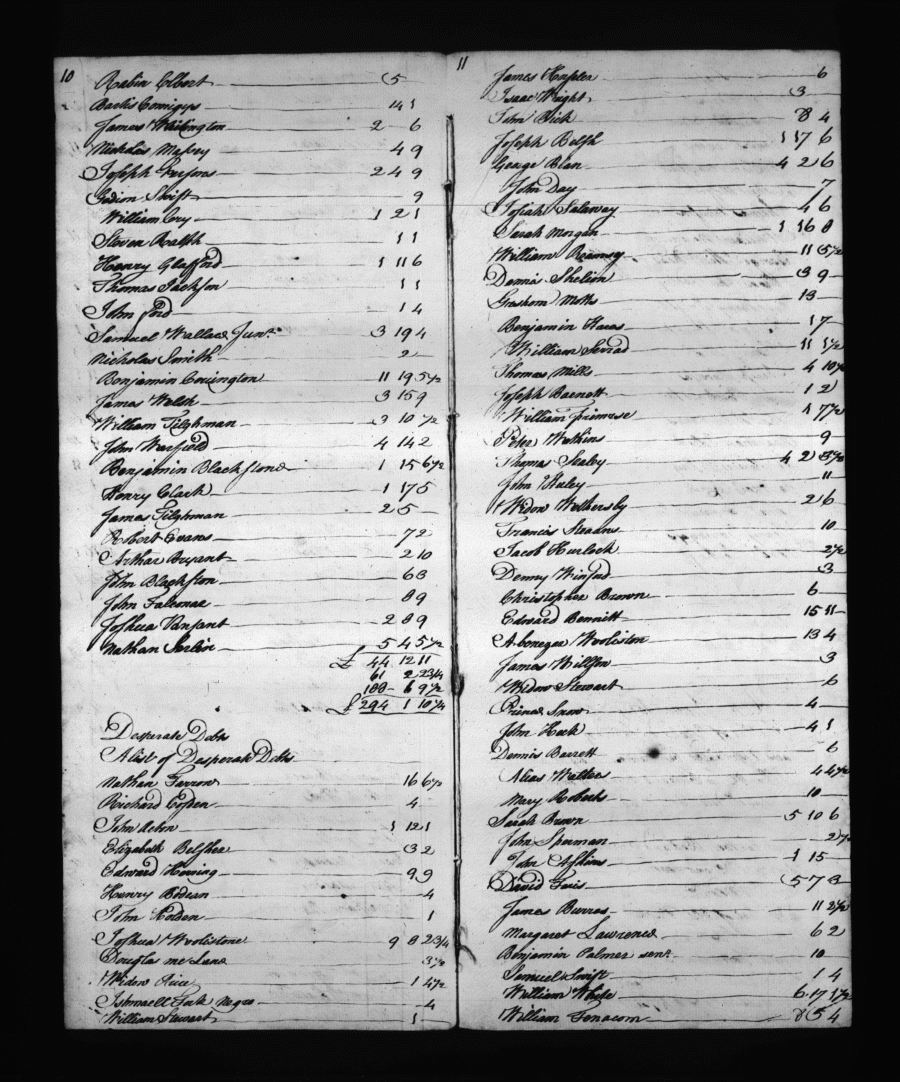 10
Rabin Elbert 5
Bartis Comigys 14 1
James Wailington 2 - 6
Nicholas Massey 4 9
Joseph Parsons 2 4 9
Gedion Swift 9
William Cry 1 2 1
Steven Ralph 1 1
Henry Glafford 1 11 6
Thomas Jackson 1 1
John Ford 1 4
Samuel Wallace Junr. 3 19 4
Nicholas Smith 2
Benjamin Covington 11 19 5 1/2
James Welsh 3 15 9
William Tilghman 3 10 1/2
John Warfield 4 14 2
Benjamin Blackstone 1 15 6 1/2
Henry Clark 1 17 5
James Tilghman 2 5
Robert Evans 7 2
Arthur Bryant 2 10
John Blackston 6 3
John Falconar 8 9
Joshua Vansant 2 8 9
Nathan 5 4 5 1/2
£ 44 12 11
61 2 2 3/4
188 6 9 1/2
£ 294 1 10 1/4
Desperate Debts
A list of Desperate Debts
Nathan Farrow 16 6 1/2
Richard Cosden 4
John 1 12 1
Elizabeth Belsher 3 2
Edward Hening 9 9
Henry Bodean 4
John Holden 1
Joshua Woolistone 9 8 2 3/4
Douglas mc Lane 3 1/2
Widow Rice 1 4 1/2
Ishmaell Negro 4
William Stewart 1
11
James 6
Isaac Wright 3
John Bick 8 4
Joseph Belsh 1 17 6
George Blan 4 2 6
John Day 7
Josiah Salaway 4 6
Sarah Morgan 1 16 8
William Ramsey 11 5 1/2
Dennis Shelion 3 9
Gresham Moths 13
Benjamin Haras 1 7
William Serrad 11 1 1/2
Thomas Mills 4 10 1/2
Joseph Barnett 1 2
William Primrose 1 7 1/2
Peter Wathins 9
Thomas Sealey 4 2 3 1/2
John Haley 11
Widow Wethersby 2 6
Francis Stearns 10
Jacob Hurlock 2 1/2
Denny Winford 3
Christopher Brown 6
Edward Bennitt 15 11
Abonegar Wooliston 13 4
James Willson 3
Widow Stewart 6
Prince Snow 4
John Heck 4 1
Dennis Barrett 6
Alias Walters 4 4 1/2
Mary Roberts 10
Sarah Brown 5 10 6
John Spearman 2 1/2
John Askins 1 15
David Faris 5 7 3
James Burras 11 2 1/2
Margaret Lawrence 6 2
Benjamin Palmer senr. 10
Samuel Swift 1 4
William White 6 17 1 1/2
William 8 5 4